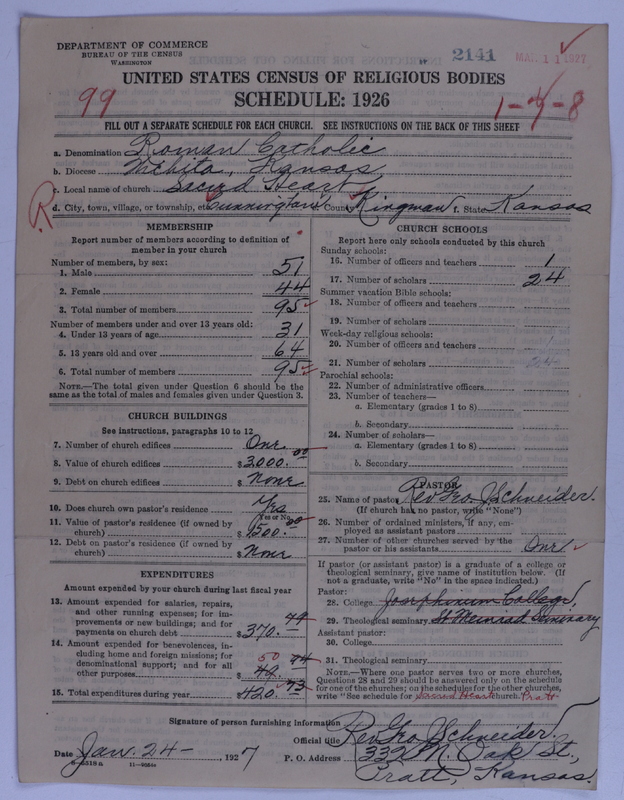 DEPARTMENT OF COMMERCE
BUREAU OF THE CENSUS
WASHINGTON
2141
MAR 11 1927
UNITED STATES CENSUS OF RELIGIOUS BODIES
SCHEDULE: 1926
99
1-4-8
FILL OUT A SEPARATE SCHEDULE FOR EACH CHURCH. SEE INSTRUCTIONS ON THE BACK OF THIS SHEET
a. Denomination Roman Catholic
b. Diocese Wichita, Kansas
c. Local name of church Sacred Heart
R
d. City, town, village, or township, etc. Cunningham e. County Kingman f. State Kansas
MEMBERSHIP
Report number of members according to definition of
member in your church
Number of members, by sex:
1. Male 51
2. Female 44
3. Total number of members 95
Number of members under and over 13 years old:
4. Under 13 years of age 31
5. 13 years old and over 64
6. Total number of members 95
NOTE.—The total given under Question 6 should be
same as the total of males and females given under Question 3.
CHURCH BUILDINGS
See instructions, paragraphs 10 to 12
7. Number of church edifices One
8. Value of church edifices $3,000.00
9. Debt on church edifices $ None
10. Does church own pastor's residence? Yes
Yes or No
11. Value of pastor's residence (if owned by
church) $1500.00
12. Debt on pastor's residence (if owned by
church) $ None
EXPENDITURES
Amount expended by your church during last fiscal year
13. Amount expended for salaries, repairs,
and other running expenses; for im-
provements or new buildings; and for
payments on church debt $370.99
14. Amount expended for benevolences, in-
cluding home and foreign missions; for
denominational support; and for all
other purposes 50 49.74
15. Total expenditures during year $420.73
CHURCH SCHOOLS
Report here only schools conducted by this church
Sunday schools:
16. Number of officers and teachers 1
17. Number of scholars 24
Summer vacation Bible schools:
18. Number of officers and teachers
19. Number of scholars
Week-day religious schools:
20. Number of officers and teachers 1
21. Number of scholars 24
Parochial schools:
22. Number of administrative officers
23. Number of teachers—
a. Elementary (grades 1 to 8)
b. Secondary
24. Number of scholars—
a. Elementary (grades 1 to 8)
b. Secondary
PASTOR
25. Name of pastor Rev Geo J Schneider.
(If church has no pastor, write "None")
26. Number of ordained ministers, if any, em-
ployed as assistant pastors
27. Number of other churches served by the
pastor or his assistants One
If pastor (or assistant pastor) is a graduate of a college or
theological seminary, give name of institution below. (If
not a graduate, write "No" in the space indicated.)
Pastor:
28. College Josephinum College,
29. Theological seminary St Meinrad Seminary
Assistant pastor:
30. College
31. Theological seminary
NOTE.—Where one pastor serves two or more churches,
Questions 28 and 29 should be answered only on the schedule
for one of the churches; on the schedules for the other churches,
write "See schedule for Sacred Heart church. Pratt
Signature of person furnishing information
Official title Rev Geo J Schneider.
Date Jan. 24 - 1927 P. O. Address 332 N. Oak St.,
Pratt, Kansas.